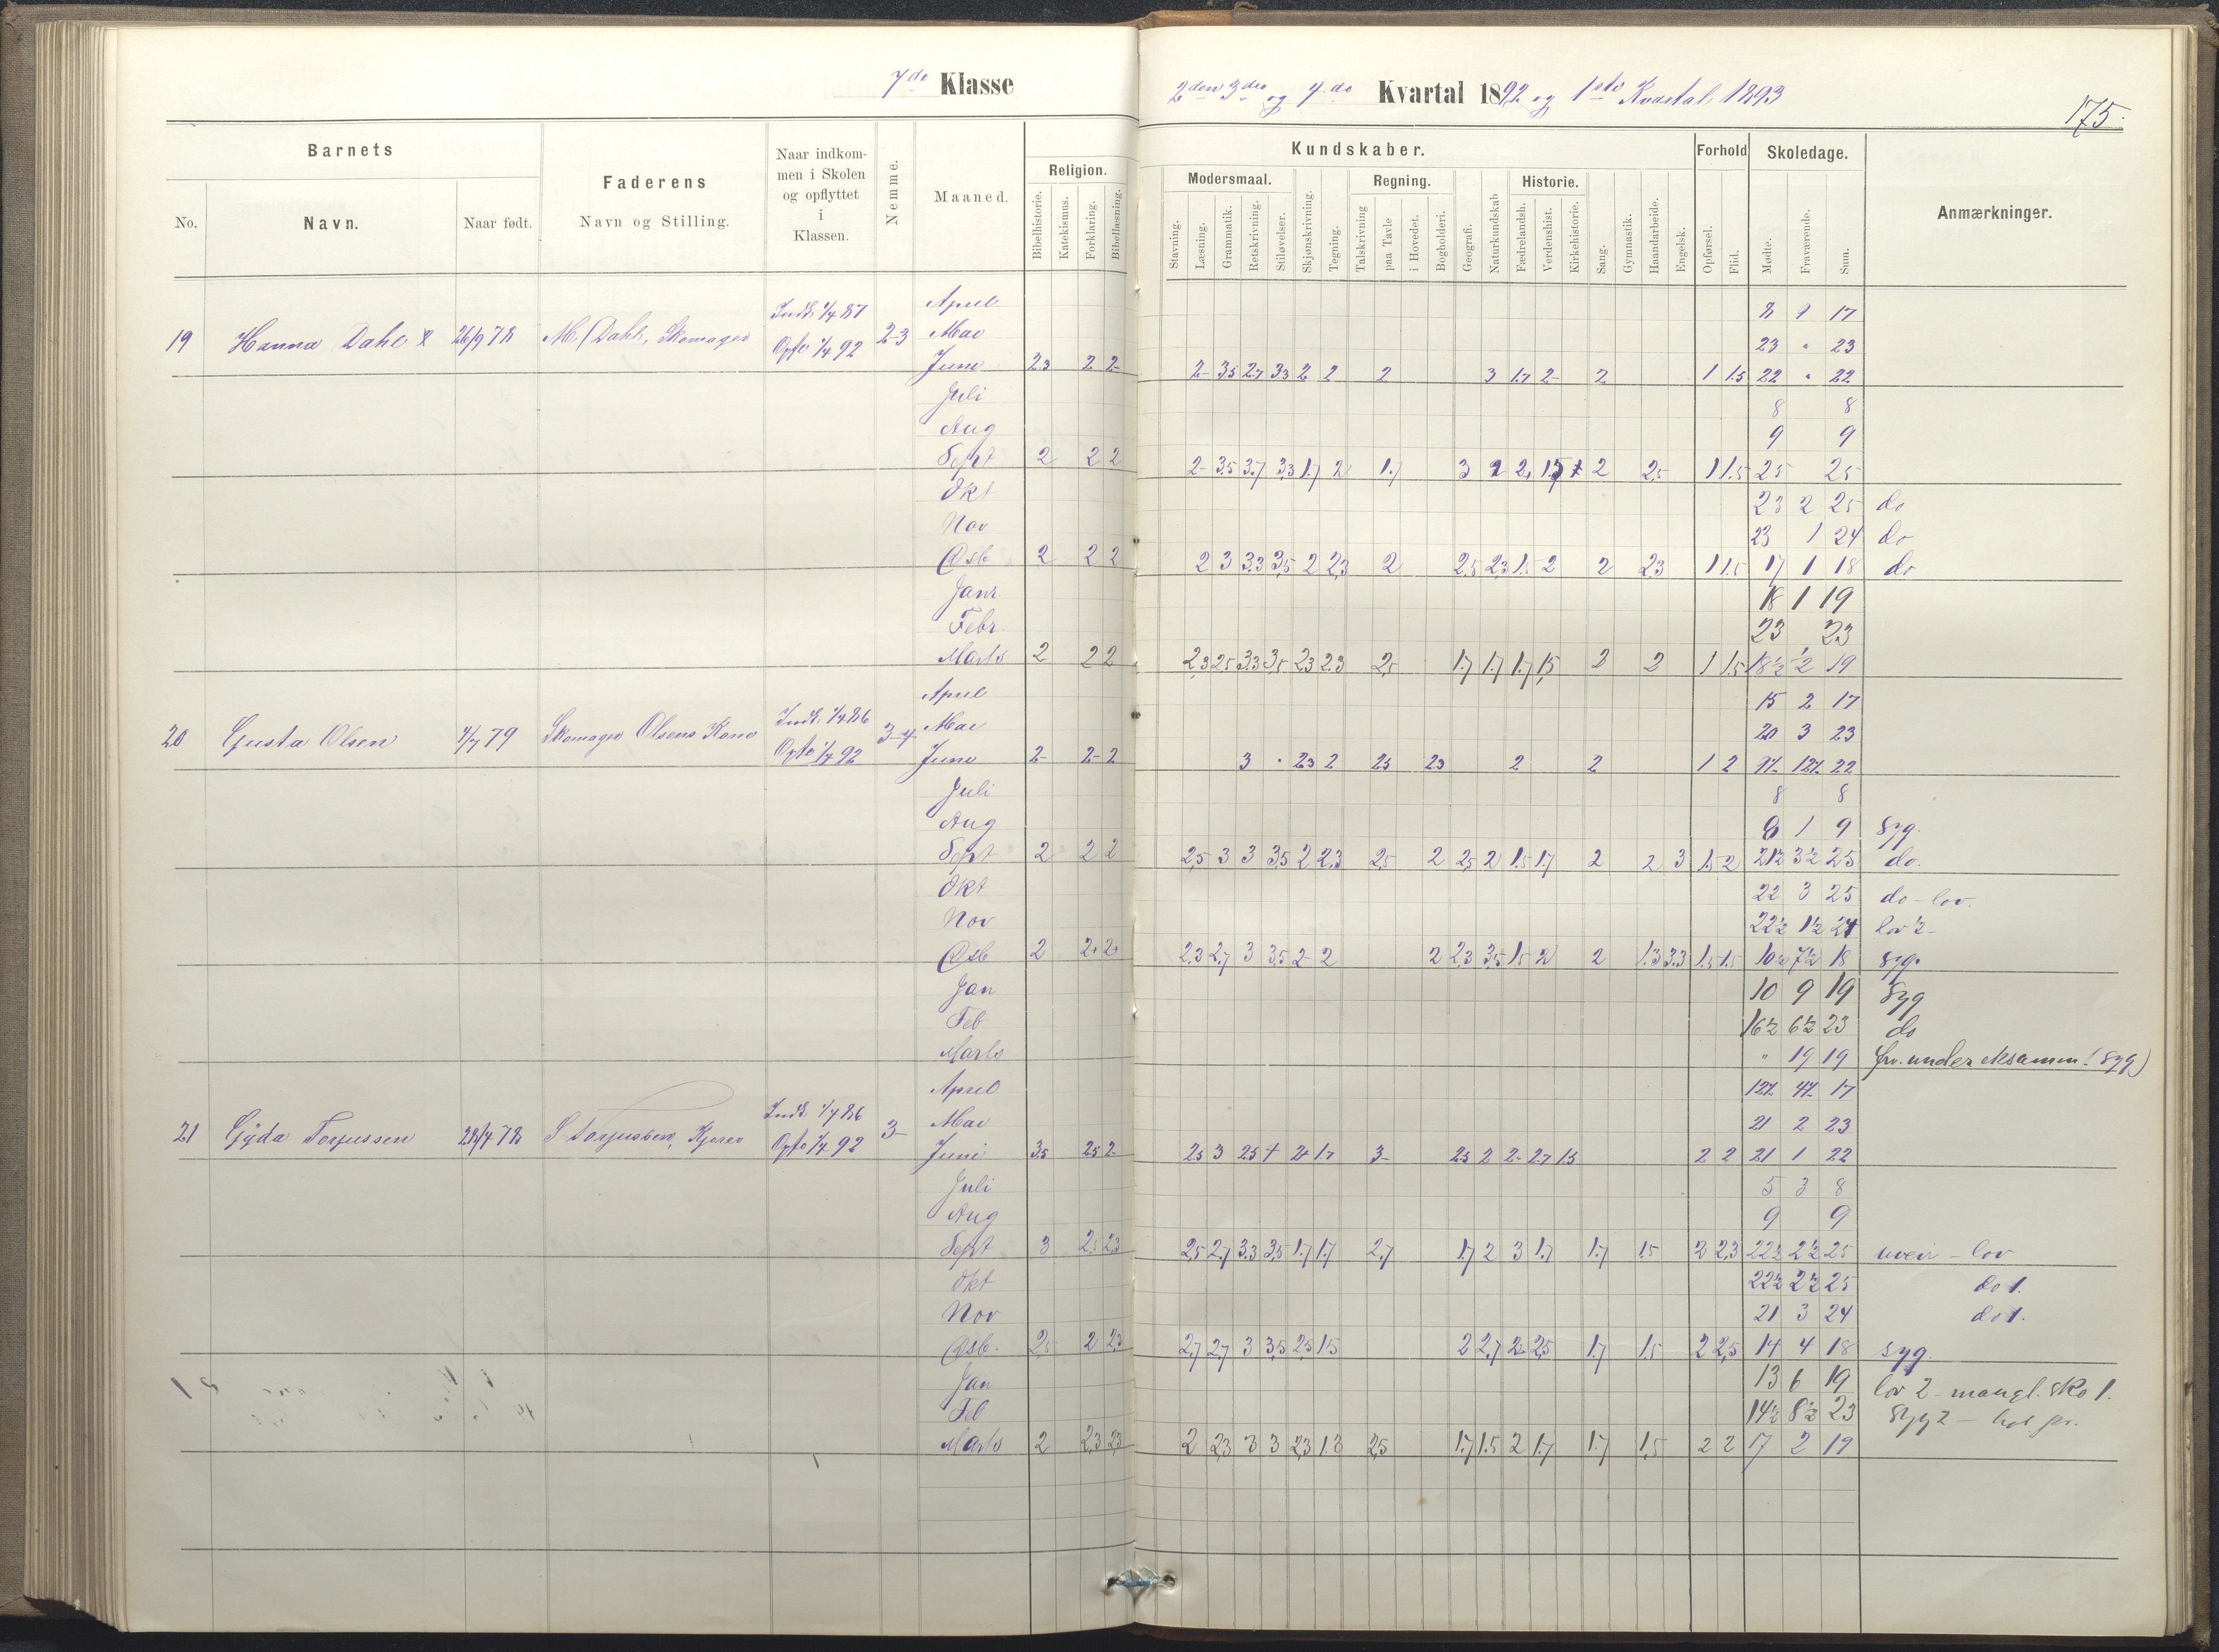 7de Klasse
2den 3die og 4de Kvartal 1892 og 1ste Kvartal 1893
175.
Barnets
Faderens
Naar indkommen i Skolen og opflyttet i Klassen.
Nemme.
Maaned.
Religion.
Kundskaber.
Forhold
Skoledage.
Anmærkninger.
No.
Navn.
Naar født.
Navn og Stilling.
Bibelhistorie.
Katekismus.
Forklaring.
Bibellæsning.
Modersmaal.
Regning.
Historie.
Stavning.
Læsning.
Grammatik.
Retskrivning.
Stiløvelser.
Skjønskrivning.
Tegning.
Talskrivning
paa Tavle
i Hovedet.
Bogholderi.
Geografi.
Naturkundskab
Fædrelandsh.
Verdenshist.
Kirkehistorie.
Sang.
Gymnastik.
Haandarbeide.
Engelsk.
Opførsel.
Flid.
Mødte.
Fraværende.
Sum.
19 Hanna Dahl 26/9 78 M. Dahl, Skomager Indk 1/4 87 Opfl 1/4 92 2-3
April 8 9 17
Mai 23 " 23
Juni 2.3 2 2- 2- 3.5 2.7 3.3 2 2 2 3 1.7 2- 2 1 1.5 22 " 22
Juli 8 8
Aug 9 9
Sept 2 2 2 2- 3.5 3.7 3.3 1.7 2 1.7 3 2 2 2 2.5 1 1.5 25 25
Okt 23 2 25 do
Nov 23 1 24 do
Dsb 2 2 2 2 3 3.3 3.5 2 2.3 2 2.5 2.3 1.5 2 2 2.3 1 1.5 17 1 18 do
Janr 18 1 19
Febr 23 23
Marts 2 2 2 2.3 2.5 3.3 3.5 2.3 2.3 2.5 1.7 1.7 1.7 1.5 2 2 1 1.5 18½ ½ 19
20 Gusta Olsen 79 Skomager Olsens Kone Indk. 1/4 86 Opfl 1/4 92 3-4
April 15 2 17
Mai 20 3 23
Juni 2- 2- 2 3 " 2.3 2 2.5 2.3 2 2 1 2 9½ 12½ 22
Juli 8 8
Aug 8 1 9 syg.
Sept 2 2 2 2.5 3 3 3.5 2 2.3 2.5 2 2.5 2 1.5 1.7 2 2 3 1.5 2 21½ 3½ 25 do.
Okt 22 3 25 do - lov.
Nov 22½ 1½ 24 lov ½
Dsb 2 2+ 2+ 2.3 2.7 3 3.5 2- 2 2 2.3 3.5 1.5 2 2 1.3 3.3 1.5 1.5 10½ 7½ 18 syg.
Jan 10 9 19 Syg
Feb 16½ 6½ 23 do
Marts " 19 19 frv. under eksamen! (syg)
21 Gyda Torjussen 28/4 78 S Torjussen, Indk 1/4 86 Opfl 1/4 92 3-
April 12½ 4½ 17
Mai 21 2 23
Juni 3.5 2.5 2- 2.5 3 2.5 4 2+ 1.7 3- 2.5 2 2- 2.7 1.5 2 2 21 1 22
Juli 5 3 8
Aug 9 9
Sept 3 2.5 2.3 2.5 2.7 3.3 3.5 1.7 1.7 2.7 1.7 2 3 1.7 1.7 1.5 2 2.3 22½ 2½ 25 uveir - lov
Okt 22½ 2½ 25 do 1.
Nov 21 3 24 do 1.
Dsb. 2.5 2 2.3 2.7 2.7 3 3.5 2.5 1.5 2 2.7 2- 2.5 1.7 1.5 2 2.5 14 4 18 syg.
Jan 13 6 19 lov 2 - mangl. sko 1.
Feb 14½ 8½ 23 Syg 2 -
Marts 2 2.3 2.3 2 2.3 3 3 2.3 1.3 2.5 1.7 1.5 2 1.7 1.7 1.5 2 2 17 2 19